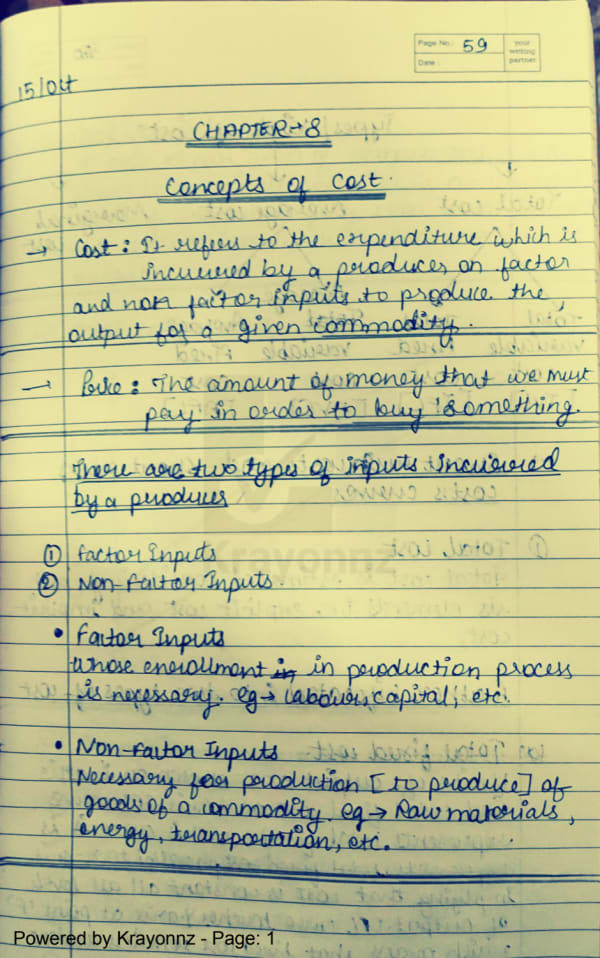 Page No.: 59
Date:
your writing partner
15/Oct
CHAPTER→8
Concepts of Cost.
→ Cost: It refers to the expenditure which is
incurred by a producer on factor
and non factor inputs to produce the
output for a given commodity.
→ Price: The amount of money that we must
pay in order to buy something.
There are two types of inputs incurred
by a producer
① Factor Inputs
② Non-Factor Inputs.
• Factor Inputs
whose enrollment in in production process
is necessary. eg→ labour, capital, etc.
• Non-Factor Inputs
Necessary for production [to produce] of
goods of a commodity. eg→ Raw materials,
energy, transportation, etc.
Krayonnz
Powered by Krayonnz - Page: 1